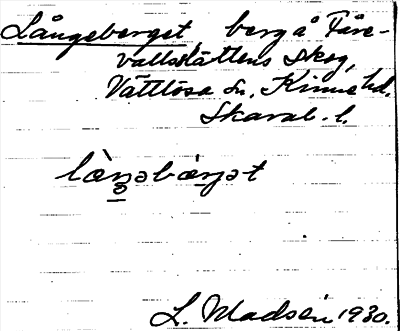 Långeberget, berg å Fåre-
vallslättens skog,
Vättlösa sn, Kinne hd.
Skarab. l.
làŋəbærjət
L. Madsén 1930.